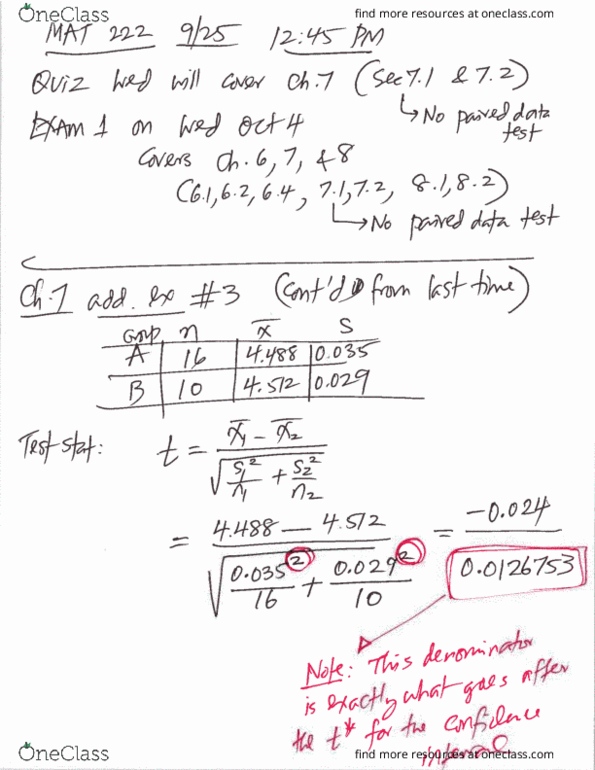 OneClass
find more resources at oneclass.com
MAT 222 9/25 12:45 PM
Quiz Wed will cover Ch.7 (Sec 7.1 & 7.2)
↳ No paired data test
Exam 1 on Wed Oct 4
Covers Ch. 6, 7, & 8
(6.1, 6.2, 6.4, 7.1, 7.2, 8.1, 8.2)
↳ No paired data test
Ch.7 add. ex #3 (Cont'd from last time)
Group n x̄ S
A 16 4.488 0.035
B 10 4.512 0.029
Test stat: t = (x̄₁ - x̄₂) / √(s₁²/n₁ + s₂²/n₂)
= (4.488 - 4.512) / √(0.035²/16 + 0.029²/10) = -0.024 / 0.0126753
Note: This denominator
is exactly what goes after
the t* for the confidence
interval
OneClass
find more resources at oneclass.com